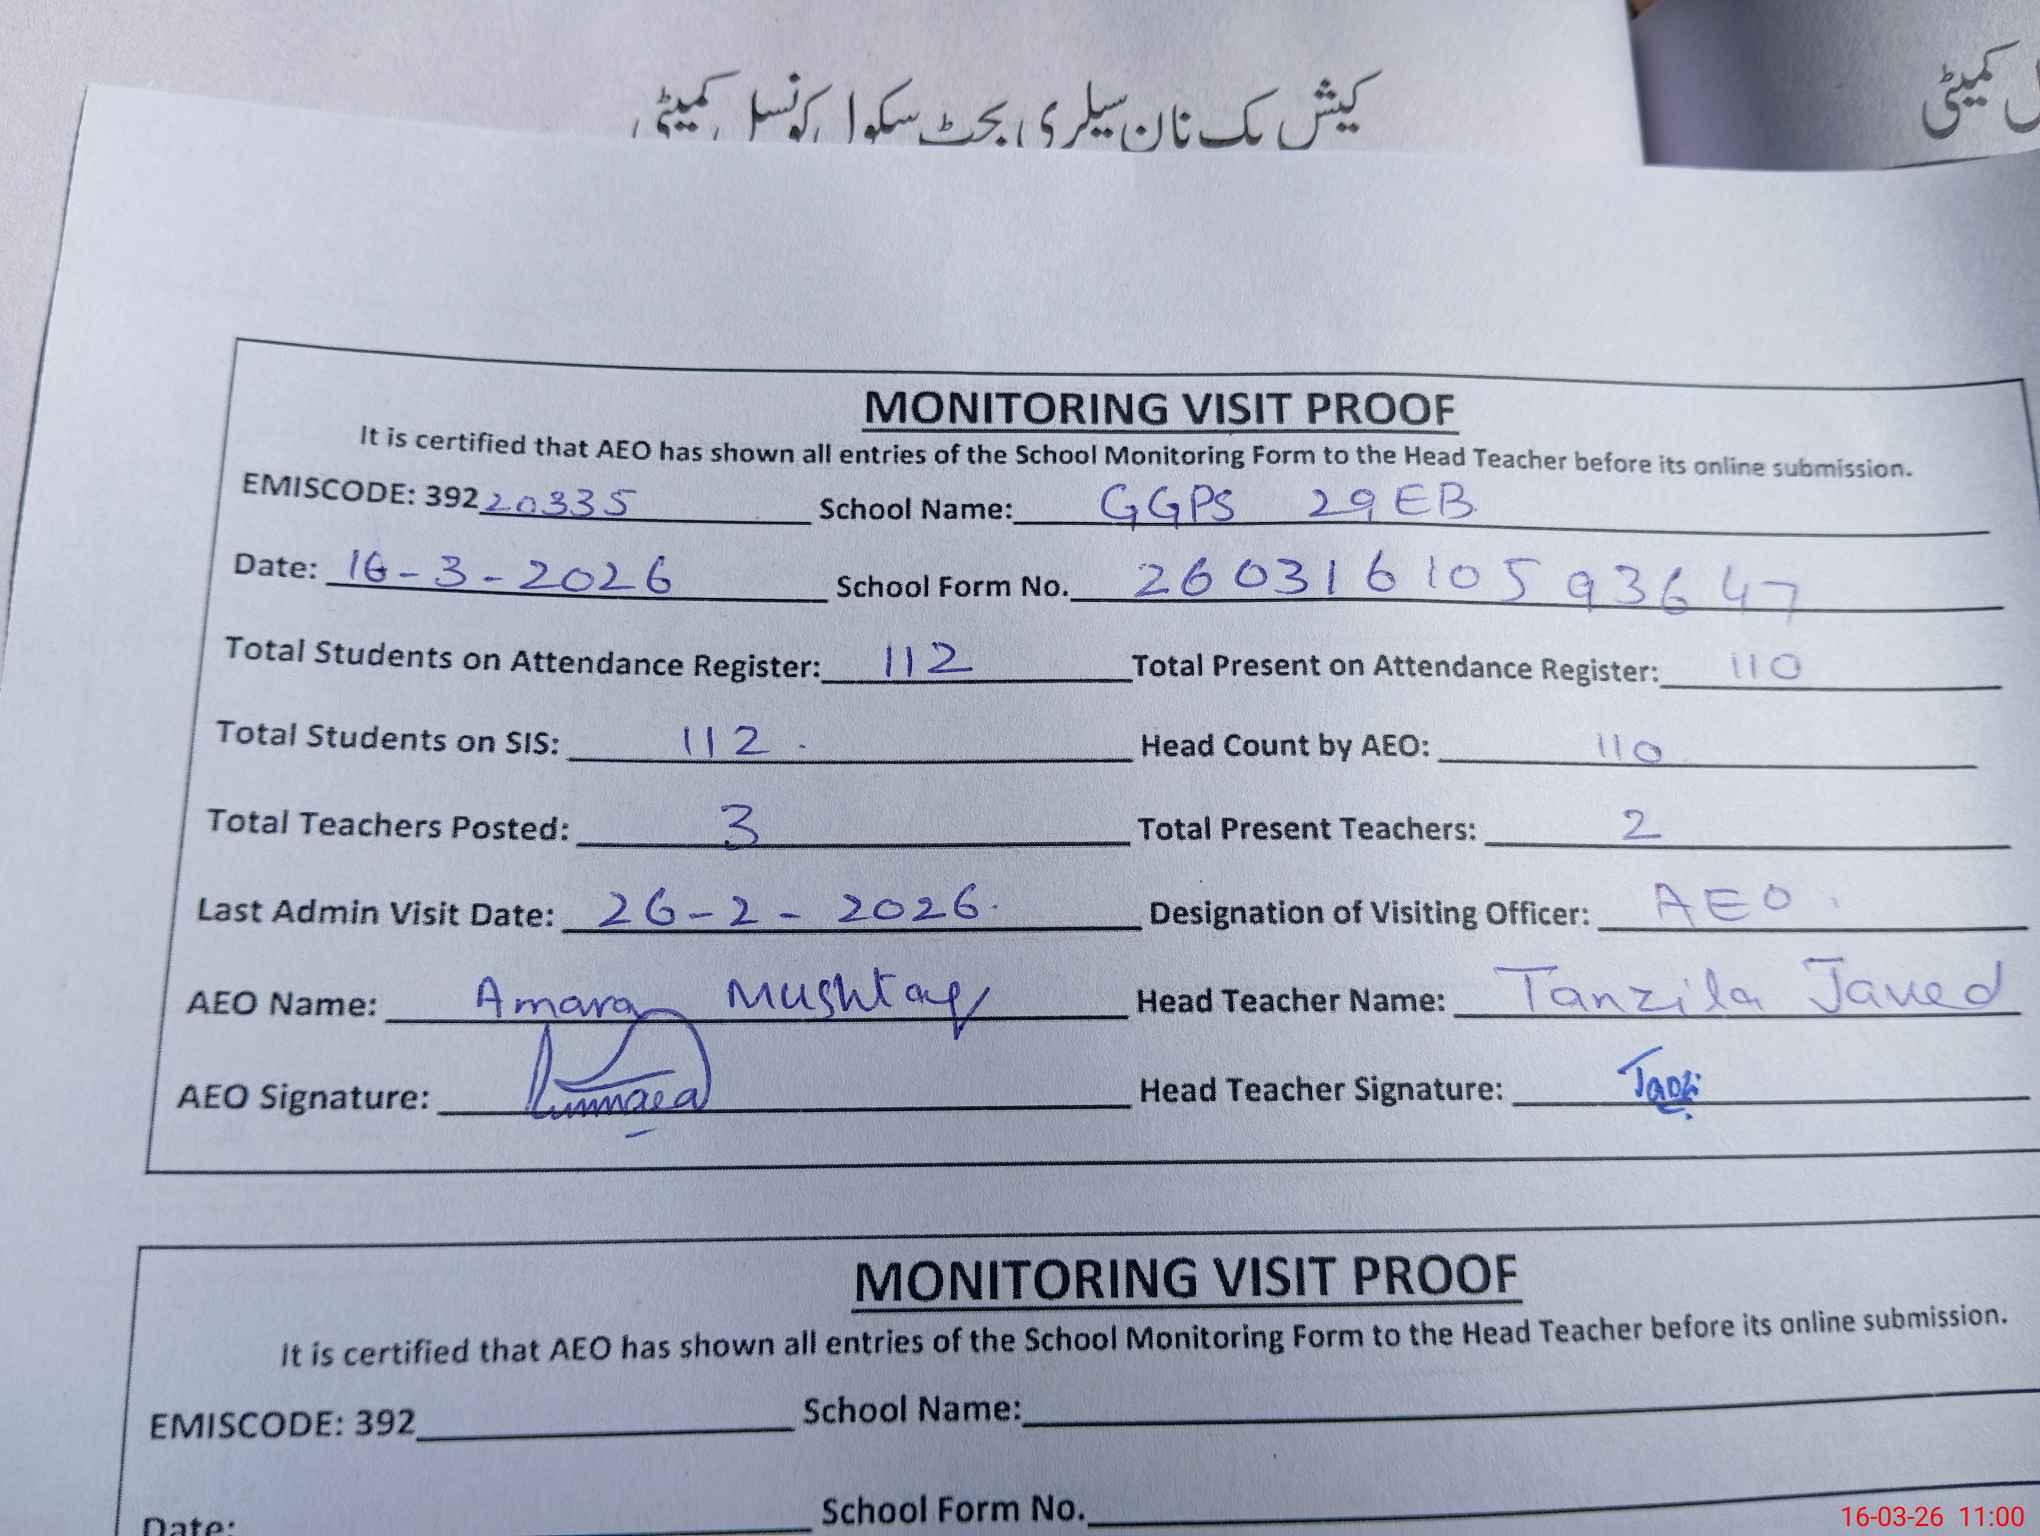 کیش بک نان سیلری بجٹ سکول کونسل کمیٹی
کمیٹی
MONITORING VISIT PROOF
It is certified that AEO has shown all entries of the School Monitoring Form to the Head Teacher before its online submission.
EMISCODE: 39220335 School Name: GGPS 29EB
Date: 16-3-2026 School Form No. 26031610593647
Total Students on Attendance Register: 112 Total Present on Attendance Register: 110
Total Students on SIS: 112. Head Count by AEO: 110
Total Teachers Posted: 3 Total Present Teachers: 2
Last Admin Visit Date: 26-2-2026. Designation of Visiting Officer: AEO.
AEO Name: Amara Mushtaq Head Teacher Name: Tanzila Javed
AEO Signature: Head Teacher Signature:
MONITORING VISIT PROOF
It is certified that AEO has shown all entries of the School Monitoring Form to the Head Teacher before its online submission.
EMISCODE: 392 School Name:
Date: School Form No.
16-03-26 11:00